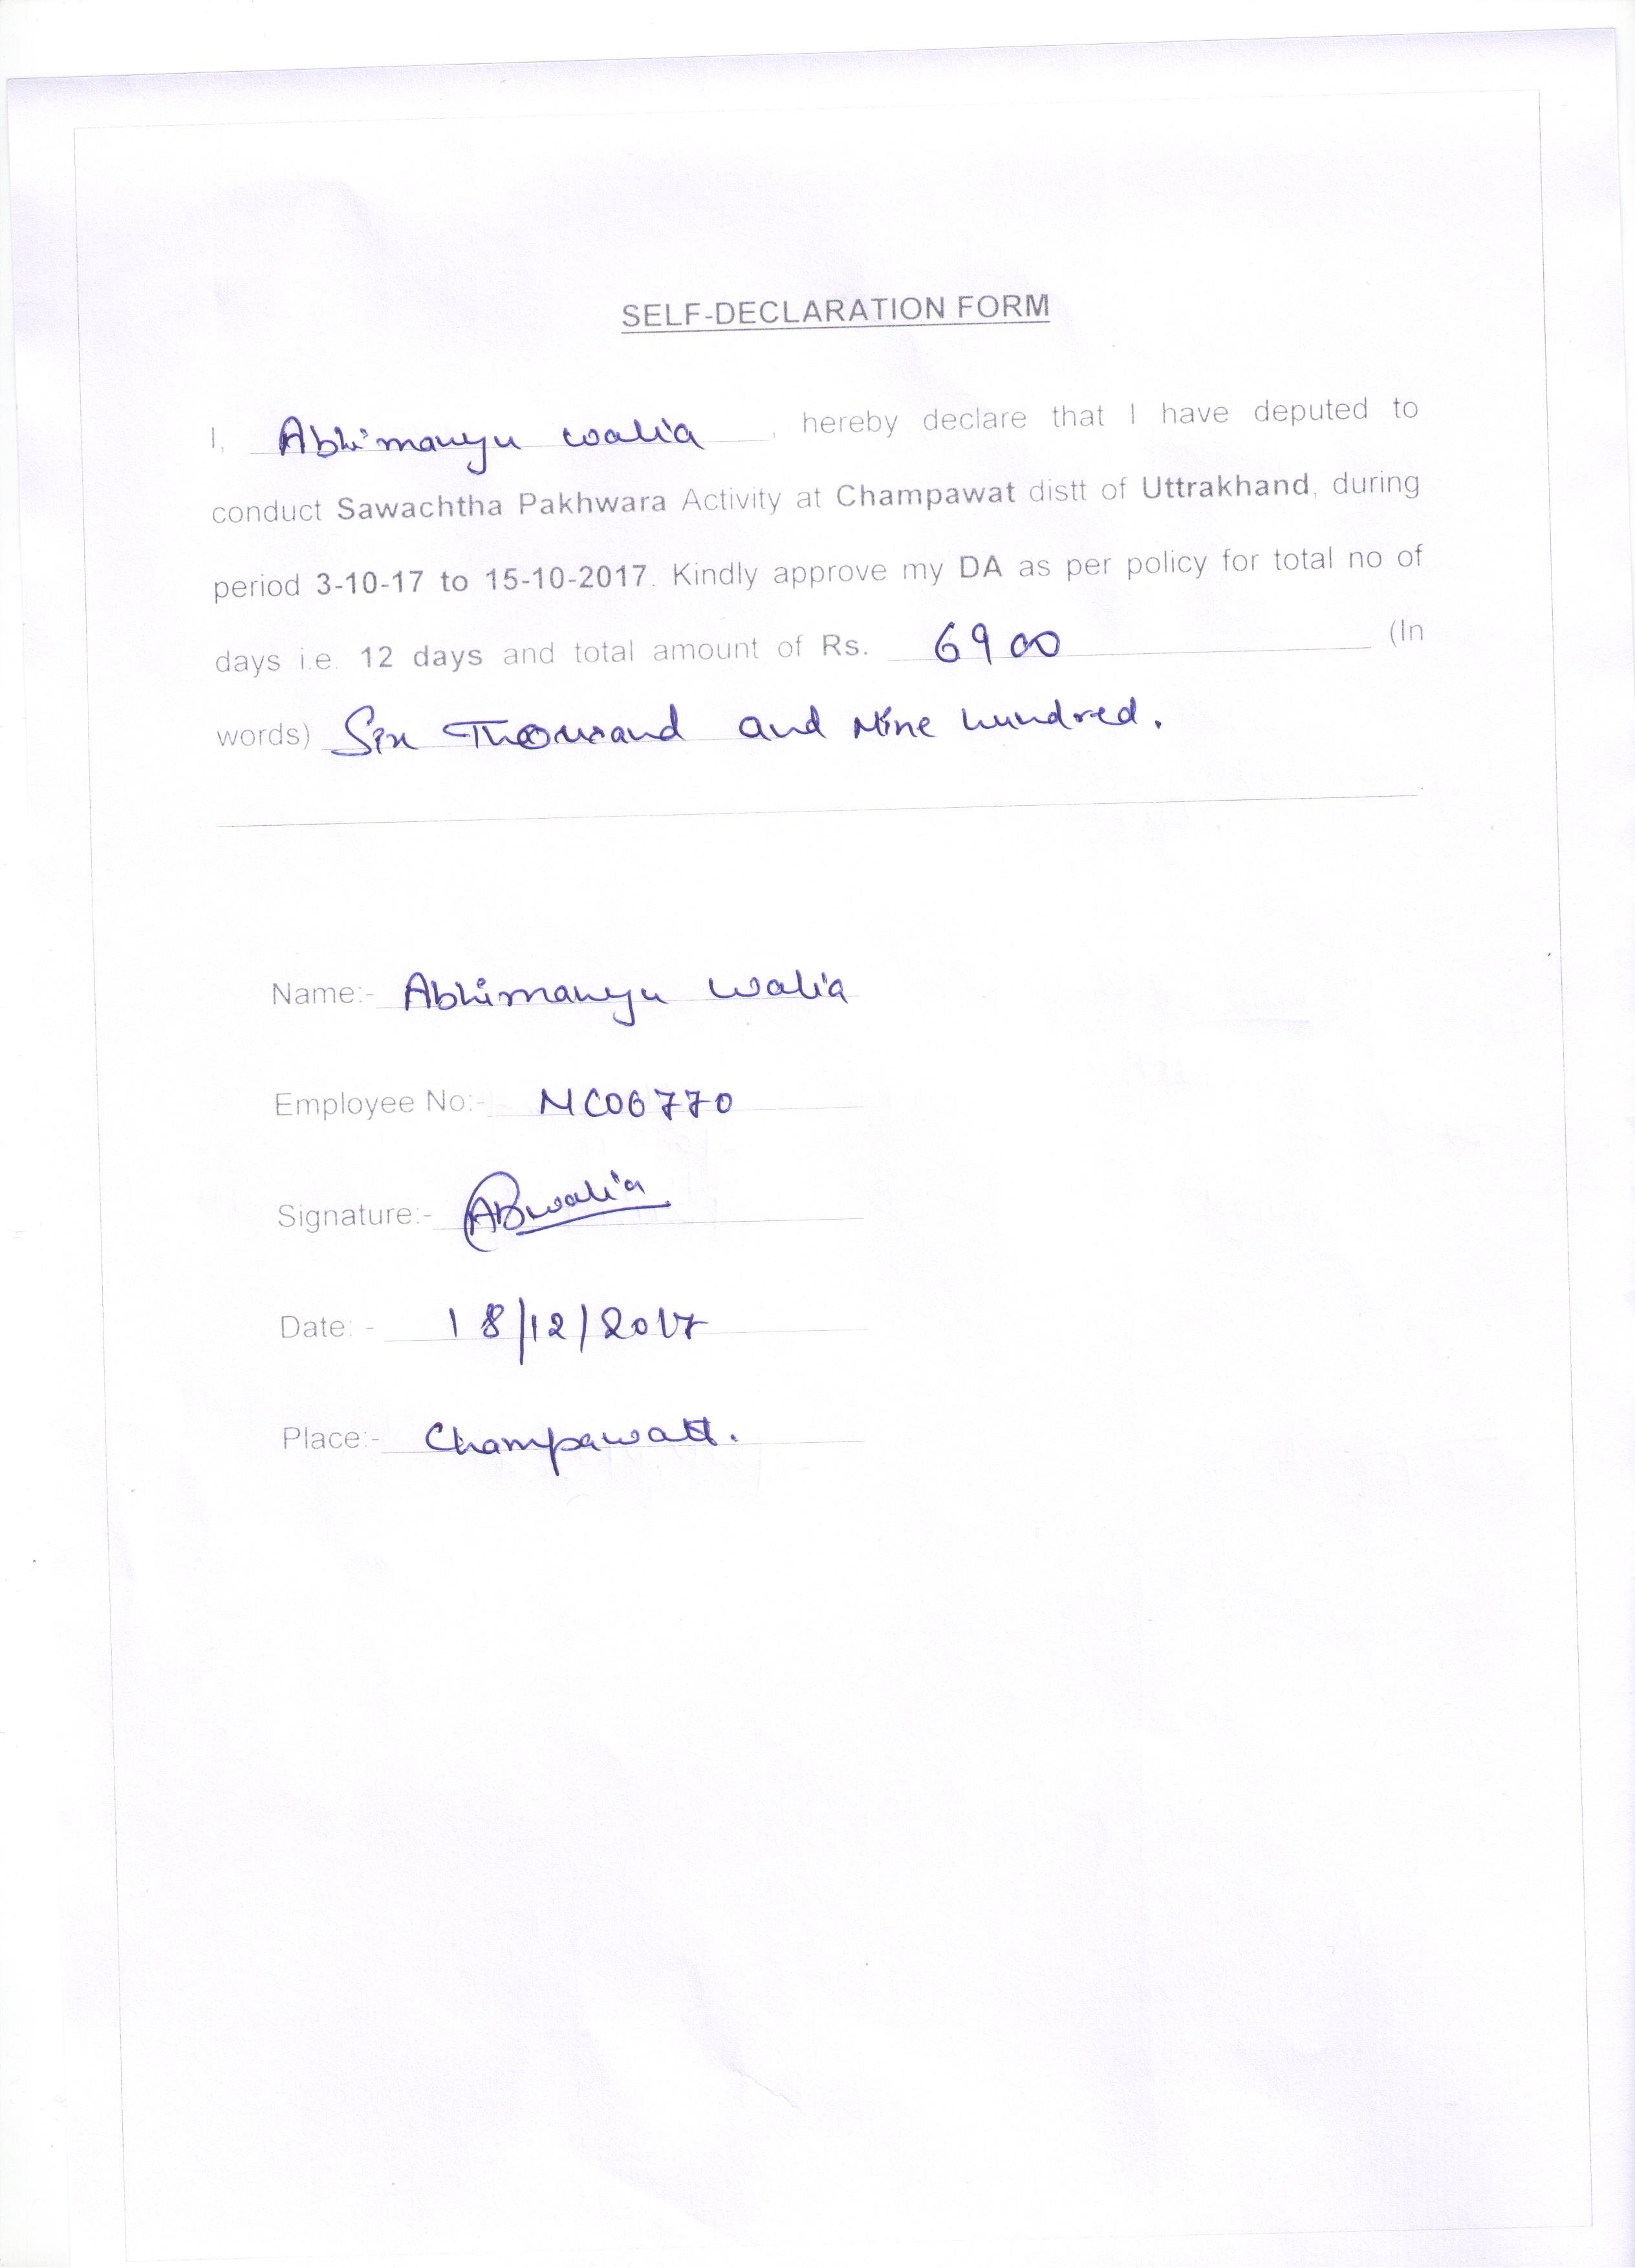 SELF-DECLARATION FORM
I, Abhimanyu Walia, hereby declare that I have deputed to
conduct Sawachtha Pakhwara Activity at Champawat distt of Uttrakhand, during
period 3-10-17 to 15-10-2017. Kindly approve my DA as per policy for total no of
days i.e. 12 days and total amount of Rs. 6900 (In
words) Six Thousand and Nine hundred.
Name:- Abhimanyu Walia
Employee No:- MC06770
Signature:- ABwalia
Date: - 18/12/2017
Place:- Champawatt.